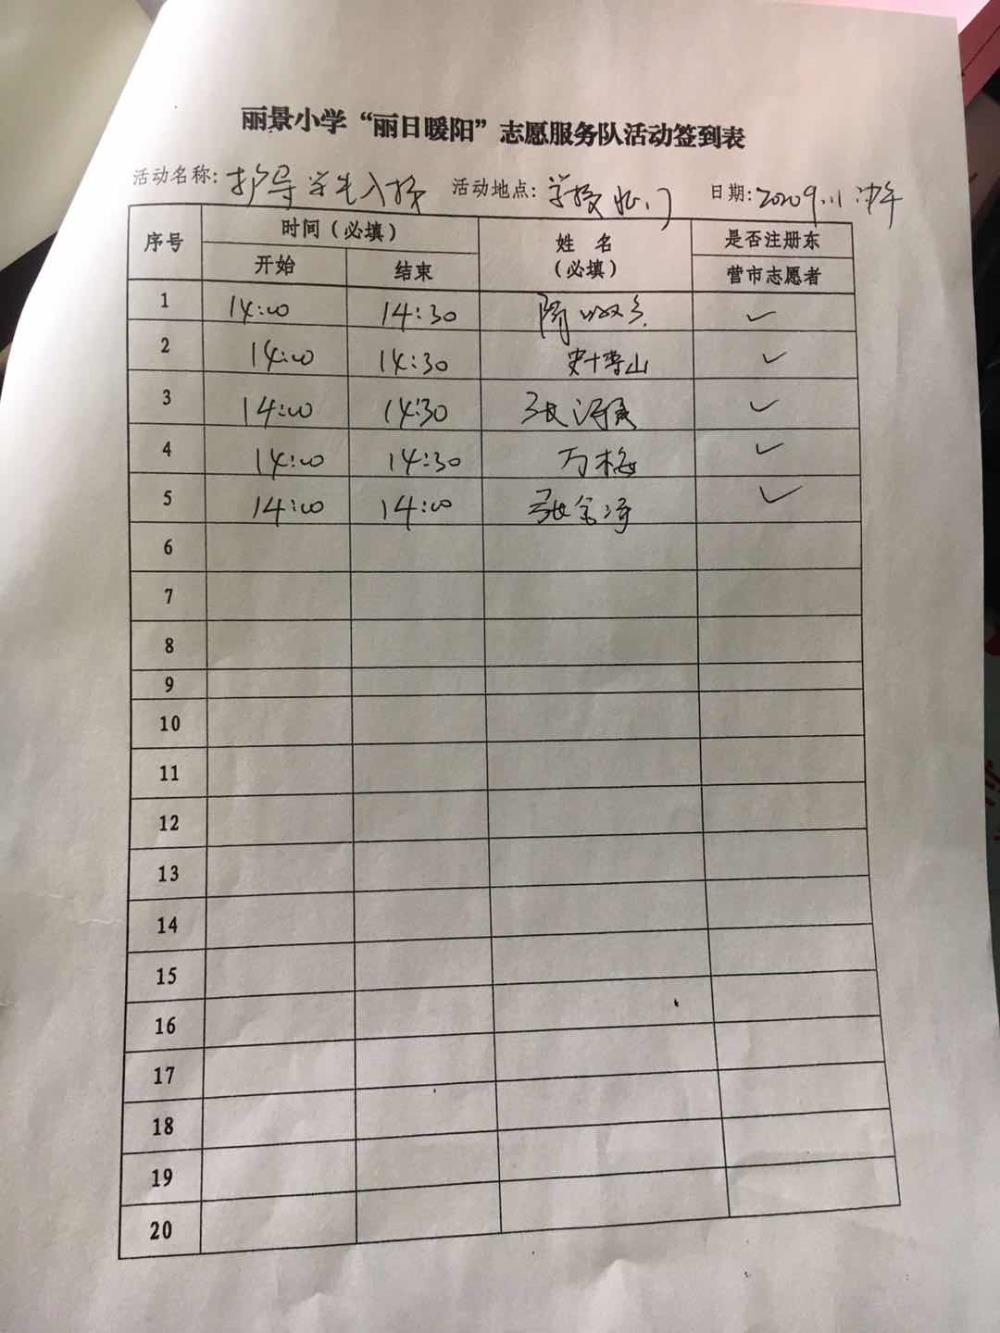 丽景小学“丽日暖阳”志愿服务队活动签到表
活动名称: 护导学生入校 活动地点: 学校北门 日期:
序号 时间（必填） 姓 名（必填） 是否注册东营市志愿者
开始 结束
1 14:00 14:30 ✓
2 14:00 14:30 ✓
3 14:00 14:30 张 ✓
4 14:00 14:30 万梅 ✓
5 14:00 14:00 张 ✓
6
7
8
9
10
11
12
13
14
15
16
17
18
19
20